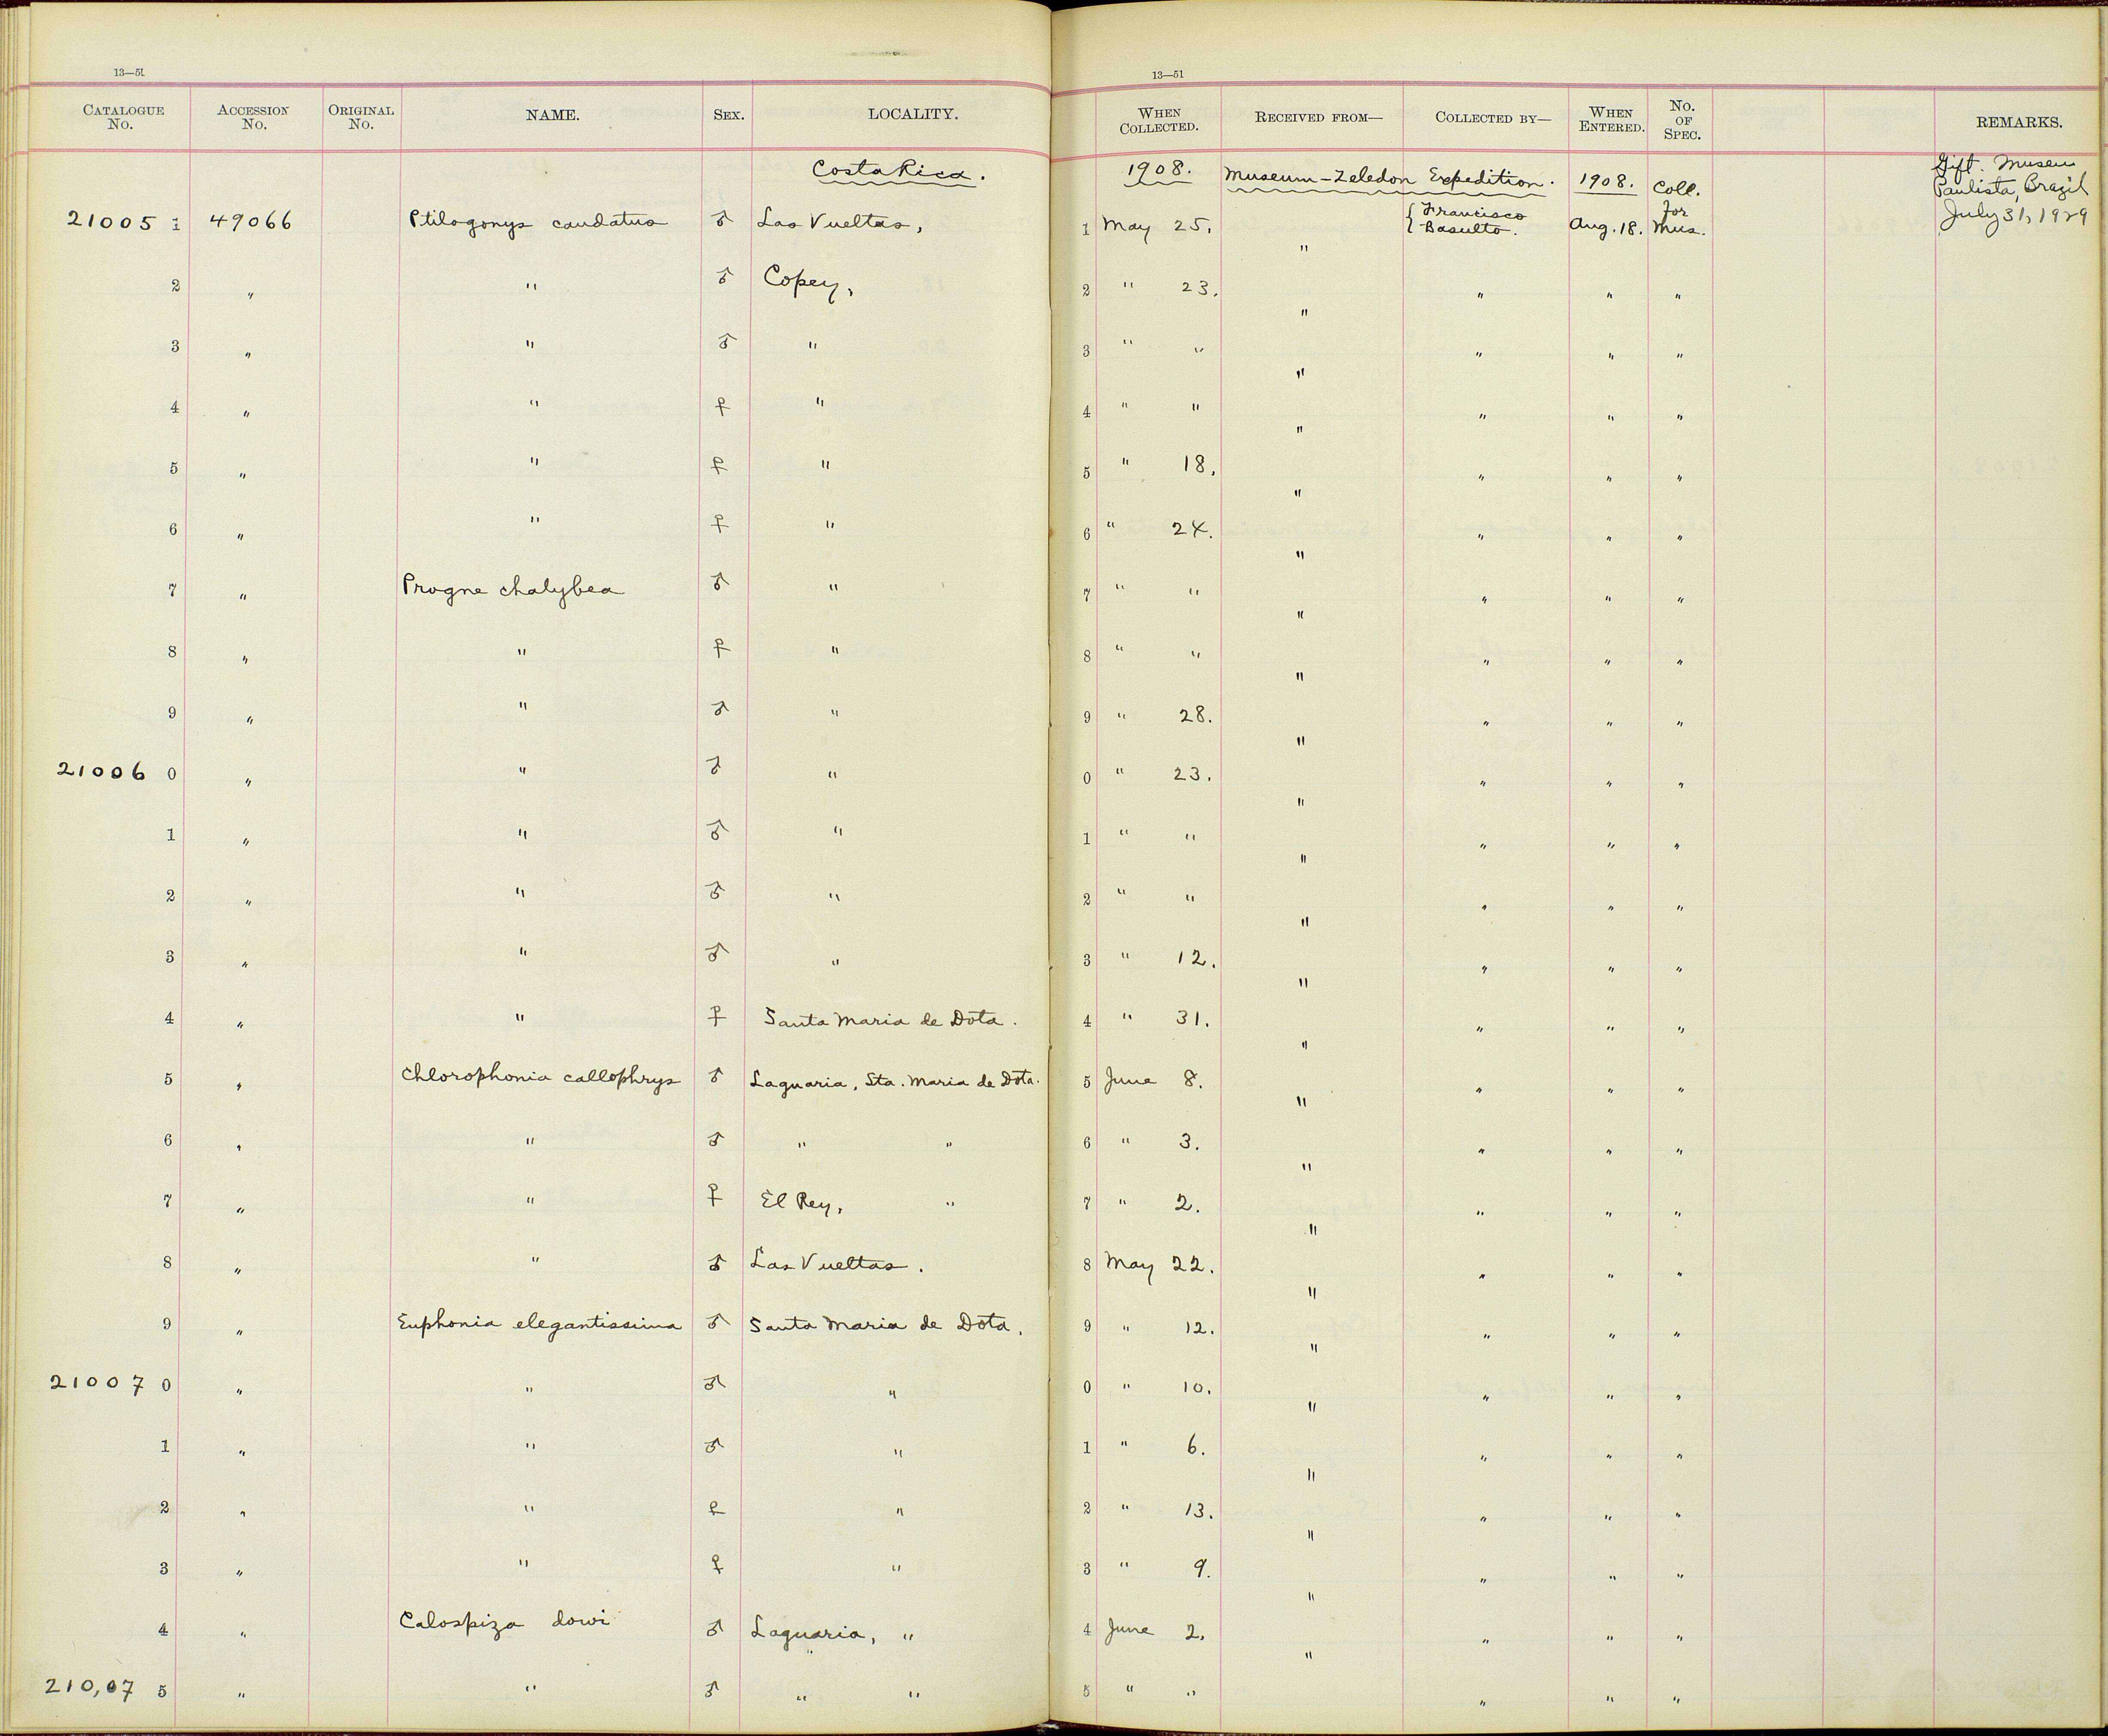 13—51
13—51
CATALOGUE No. ACCESSION No. ORIGINAL No. NAME. SEX. LOCALITY. WHEN COLLECTED. RECEIVED FROM— COLLECTED BY— WHEN ENTERED. No. OF SPEC. REMARKS.
Costa Rica. 1908. Museum-Zeledon Expedition. 1908. Coll. for Mus. Gift. Museu Paulista, Brazil July 31, 1929
21005 1 49066 Ptilogonys caudatus ♂ Las Vueltas, 1 May 25. " { Francisco Basulto. Aug. 18.
2 " " ♂ Copey, 2 " 23. " " " "
3 " " ♂ " 3 " " " " " "
4 " " ♀ " 4 " " " " " "
5 " " ♀ " 5 " 18. " " " "
6 " " ♀ " 6 " 24. " " " "
7 " Progne chalybea ♂ " 7 " " " " " "
8 " " ♀ " 8 " " " " " "
9 " " ♂ " 9 " 28. " " " "
21006 0 " " ♂ " 0 " 23. " " " "
1 " " ♂ " 1 " " " " " "
2 " " ♂ " 2 " " " " " "
3 " " ♂ " 3 " 12. " " " "
4 " " ♀ Santa Maria de Dota. 4 " 31. " " " "
5 " Chlorophonia callophrys ♂ Laguaria, Sta. Maria de Dota. 5 June 8. " " " "
6 " " ♂ " " 6 " 3. " " " "
7 " " ♀ El Rey, " 7 " 2. " " " "
8 " " ♂ Las Vueltas. 8 May 22. " " " "
9 " Euphonia elegantissima ♂ Santa Maria de Dota, 9 " 12. " " " "
21007 0 " " ♂ " 0 " 10. " " " "
1 " " ♂ " 1 " 6. " " " "
2 " " ♀ " 2 " 13. " " " "
3 " " ♀ " 3 " 9. " " " "
4 " Calospiza dowi ♂ Laguaria, " 4 June 2. " " " "
210,07 5 " " ♂ " " 5 " " " " "